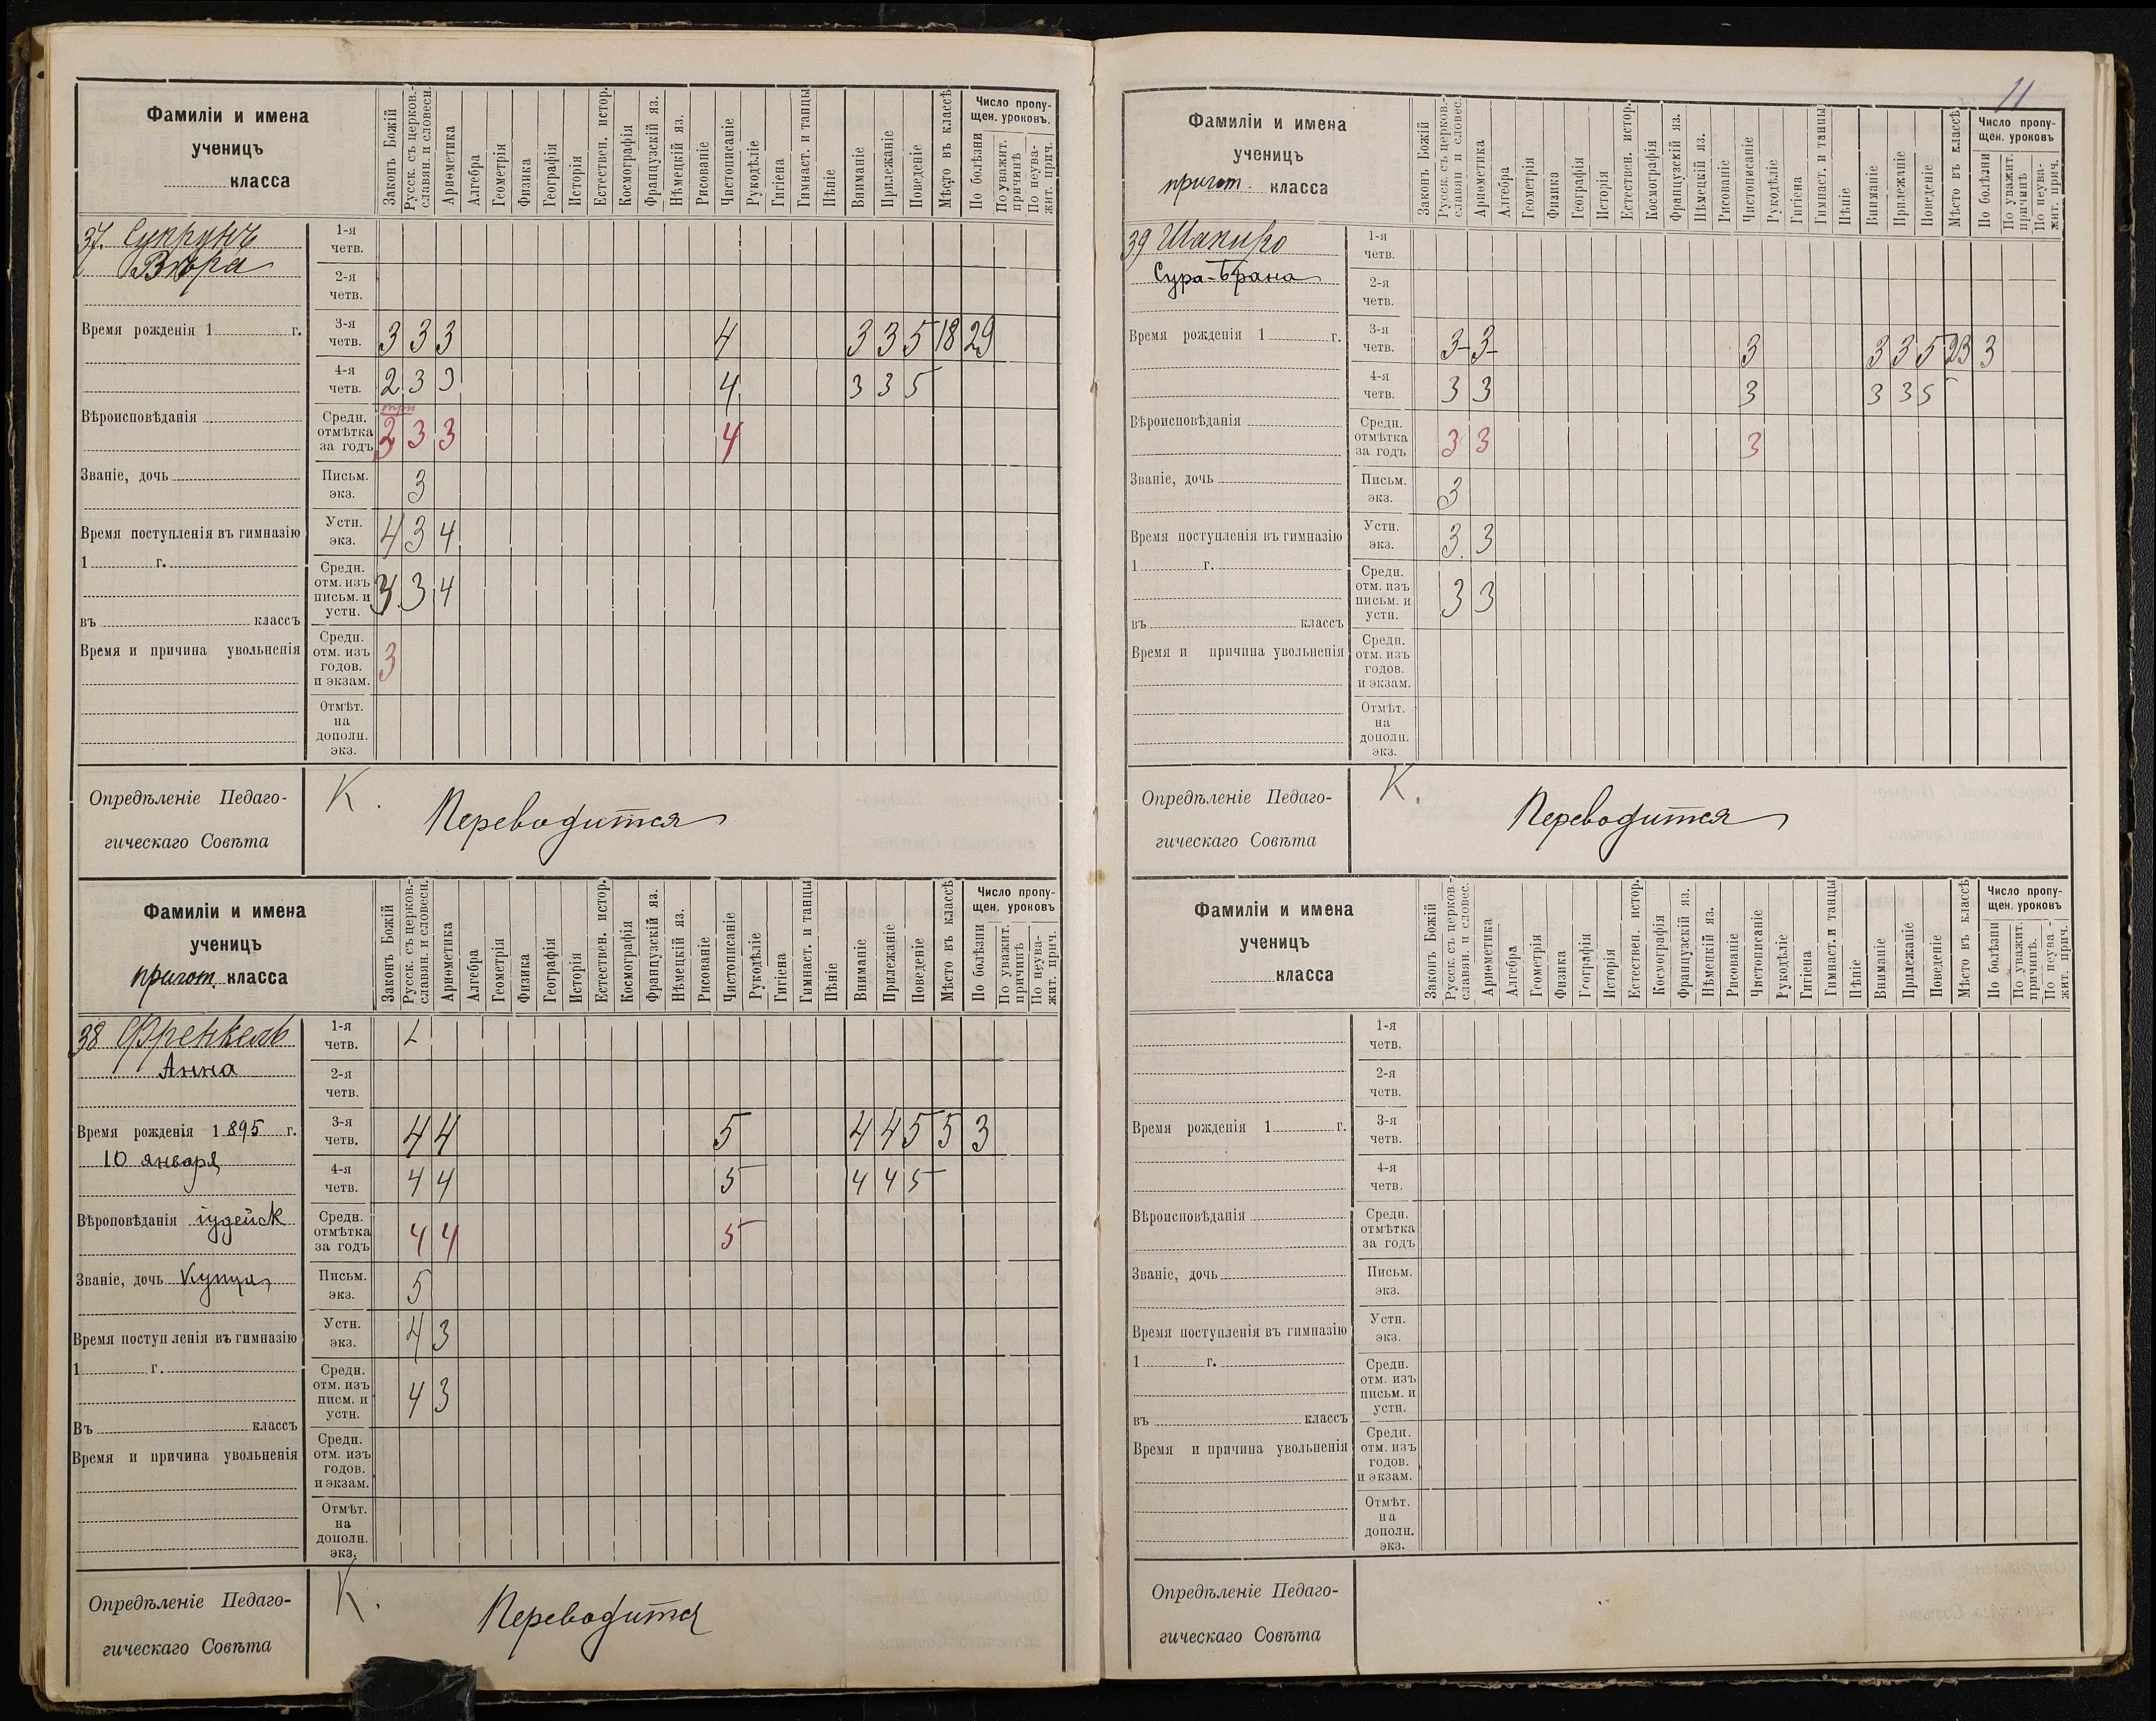 11
Фамиліи и имена
ученицъ
класса
Законъ Божій
Русск. съ церков.-
славян. и словесн.
Ариѳметика
Алгебра
Геометрія
Физика
Географія
Исторія
Естествен. истор.
Космографія
Французскій яз.
Нѣмецкій яз.
Рисованіе
Чистописаніе
Рукодѣліе
Гигіена
Гимнаст. и танцы
Пѣніе
Вниманіе
Прилежаніе
Поведеніе
Мѣсто въ классѣ
Число пропу-
щен. уроковъ.
По болѣзни
По уважит.
причинѣ
По неува-
жит. прич.
37. Супрунъ
Вѣра
Время рожденія 1 г.
Вѣроисповѣданія
Званіе, дочь
Время поступленія въ гимназію
1 г.
въ классъ
Время и причина увольненія
1-я
четв.
2-я
четв.
3-я
четв. 3 3 3 4 3 3 5 18 29
4-я
четв. 2 3 3 4 3 3 5
три
Средн.
отмѣтка
за годъ 2 3 3 4
Письм.
экз. 3
Устн.
экз. 4 3 4
Средн.
отм. изъ
письм. и
устн. 3 4
Средн.
отм. изъ
годов.
и экзам. 3
Отмѣт.
на
дополн.
экз.
Опредѣленіе Педаго-
гическаго Совѣта
К. Переводится
Фамиліи и имена
ученицъ
пригот. класса
Законъ Божій
Русск. съ церков.-
славян. и словесн.
Ариѳметика
Алгебра
Геометрія
Физика
Географія
Исторія
Естествен. истор.
Космографія
Французскій яз.
Нѣмецкій яз.
Рисованіе
Чистописаніе
Рукодѣліе
Гигіена
Гимнаст. и танцы
Пѣніе
Вниманіе
Прилежаніе
Поведеніе
Мѣсто въ классѣ
Число пропу-
щен. уроковъ
По болѣзни
По уважит.
причинѣ
По неува-
жит. прич.
38 Френкель
Анна
Время рожденія 1 895 г.
10 января
Вѣроповѣданія іудейск
Званіе, дочь Купца
Время поступленія въ гимназію
1 г.
Въ классъ
Время и причина увольненія
1-я
четв.
2-я
четв.
3-я
четв. 4 4 5 4 4 5 5 3
4-я
четв. 4 4 5 4 4 5
Средн.
отмѣтка
за годъ 4 4 5
Письм.
экз. 5
Устн.
экз. 4 3
Средн.
отм. изъ
писм. и
устн. 4 3
Средн.
отм. изъ
годов.
и экзам.
Отмѣт.
на
дополн.
экз.
Опредѣленіе Педаго-
гическаго Совѣта
К. Переводится
Фамиліи и имена
ученицъ
пригот. класса
Законъ Божій
Русск. съ церков.-
славян и словес.
Ариѳметика
Алгебра
Геометрія
Физика
Географія
Исторія
Естествен. истор.
Космографія
Французскій яз.
Нѣмецкій яз.
Рисованіе
Чистописаніе
Рукодѣліе
Гигіена
Гимнаст. и танцы
Пѣніе
Вниманіе
Прилежаніе
Поведеніе
Мѣсто въ классѣ
Число пропу-
щен. уроковъ
По болѣзни
По уважит.
причинѣ
По неува-
жит. прич.
39 Шапиро
Сура-Брана
Время рожденія 1 г.
Вѣроисповѣданія
Званіе, дочь
Время поступленія въ гимназію
1 г.
въ классъ
Время и причина увольненія
1-я
четв.
2-я
четв.
3-я
четв. 3- 3- 3 3 3 5 23 3
4-я
четв. 3 3 3 3 3 5
Средн.
отмѣтка
за годъ 3 3 3
Письм.
экз. 3
Устн.
экз. 3. 3
Средн.
отм. изъ
письм. и
устн. 3 3
Средн.
отм. изъ
годов.
и экзам.
Отмѣт.
на
дополн.
экз.
Опредѣленіе Педаго-
гическаго Совѣта
К. Переводится
Фамиліи и имена
ученицъ
класса
Законъ Божій
Русск. съ церков.-
славян. и словес.
Ариѳметика
Алгебра
Геометрія
Физика
Географія
Исторія
Естествен. истор.
Космографія
Французскій яз.
Нѣмецкій яз.
Рисованіе
Чистописаніе
Рукодѣліе
Гигіена
Гимнаст. и танцы
Пѣніе
Вниманіе
Прилежаніе
Поведеніе
Мѣсто въ классѣ
Число пропу-
щен. уроковъ
По болѣзни
По уважит.
причинѣ.
По неува-
жит. прич.
Время рожденія 1 г.
Вѣроисповѣданія
Званіе, дочь
Время поступленія въ гимназію
1 г.
въ классъ
Время и причина увольненія
1-я
четв.
2-я
четв.
3-я
четв.
4-я
четв.
Средн.
отмѣтка
за годъ
Письм.
экз.
Устн.
экз.
Средн.
отм. изъ
письм. и
устн.
Средн.
отм. изъ
годов.
и экзам.
Отмѣт.
на
дополн.
экз.
Опредѣленіе Педаго-
гическаго Совѣта